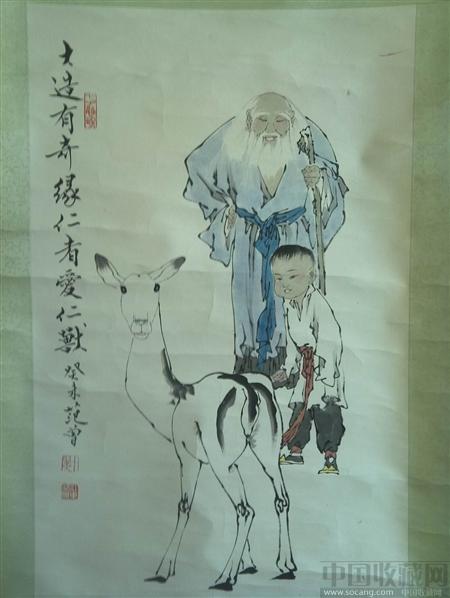 大造有奇缘仁者愛仁獸
癸未范曾
中国收藏网
www.socang.com 中国收藏网